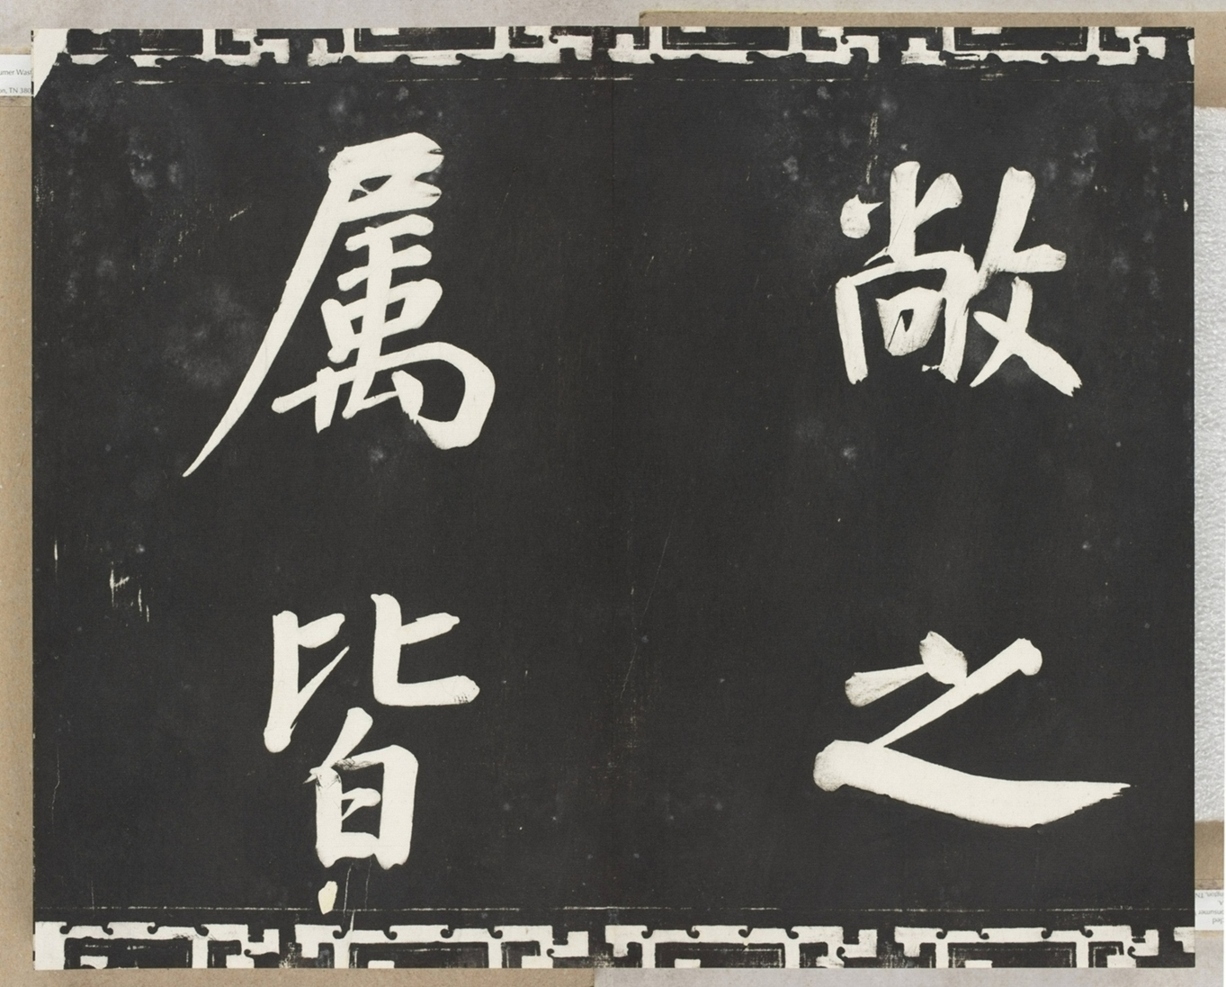 敞之
属皆